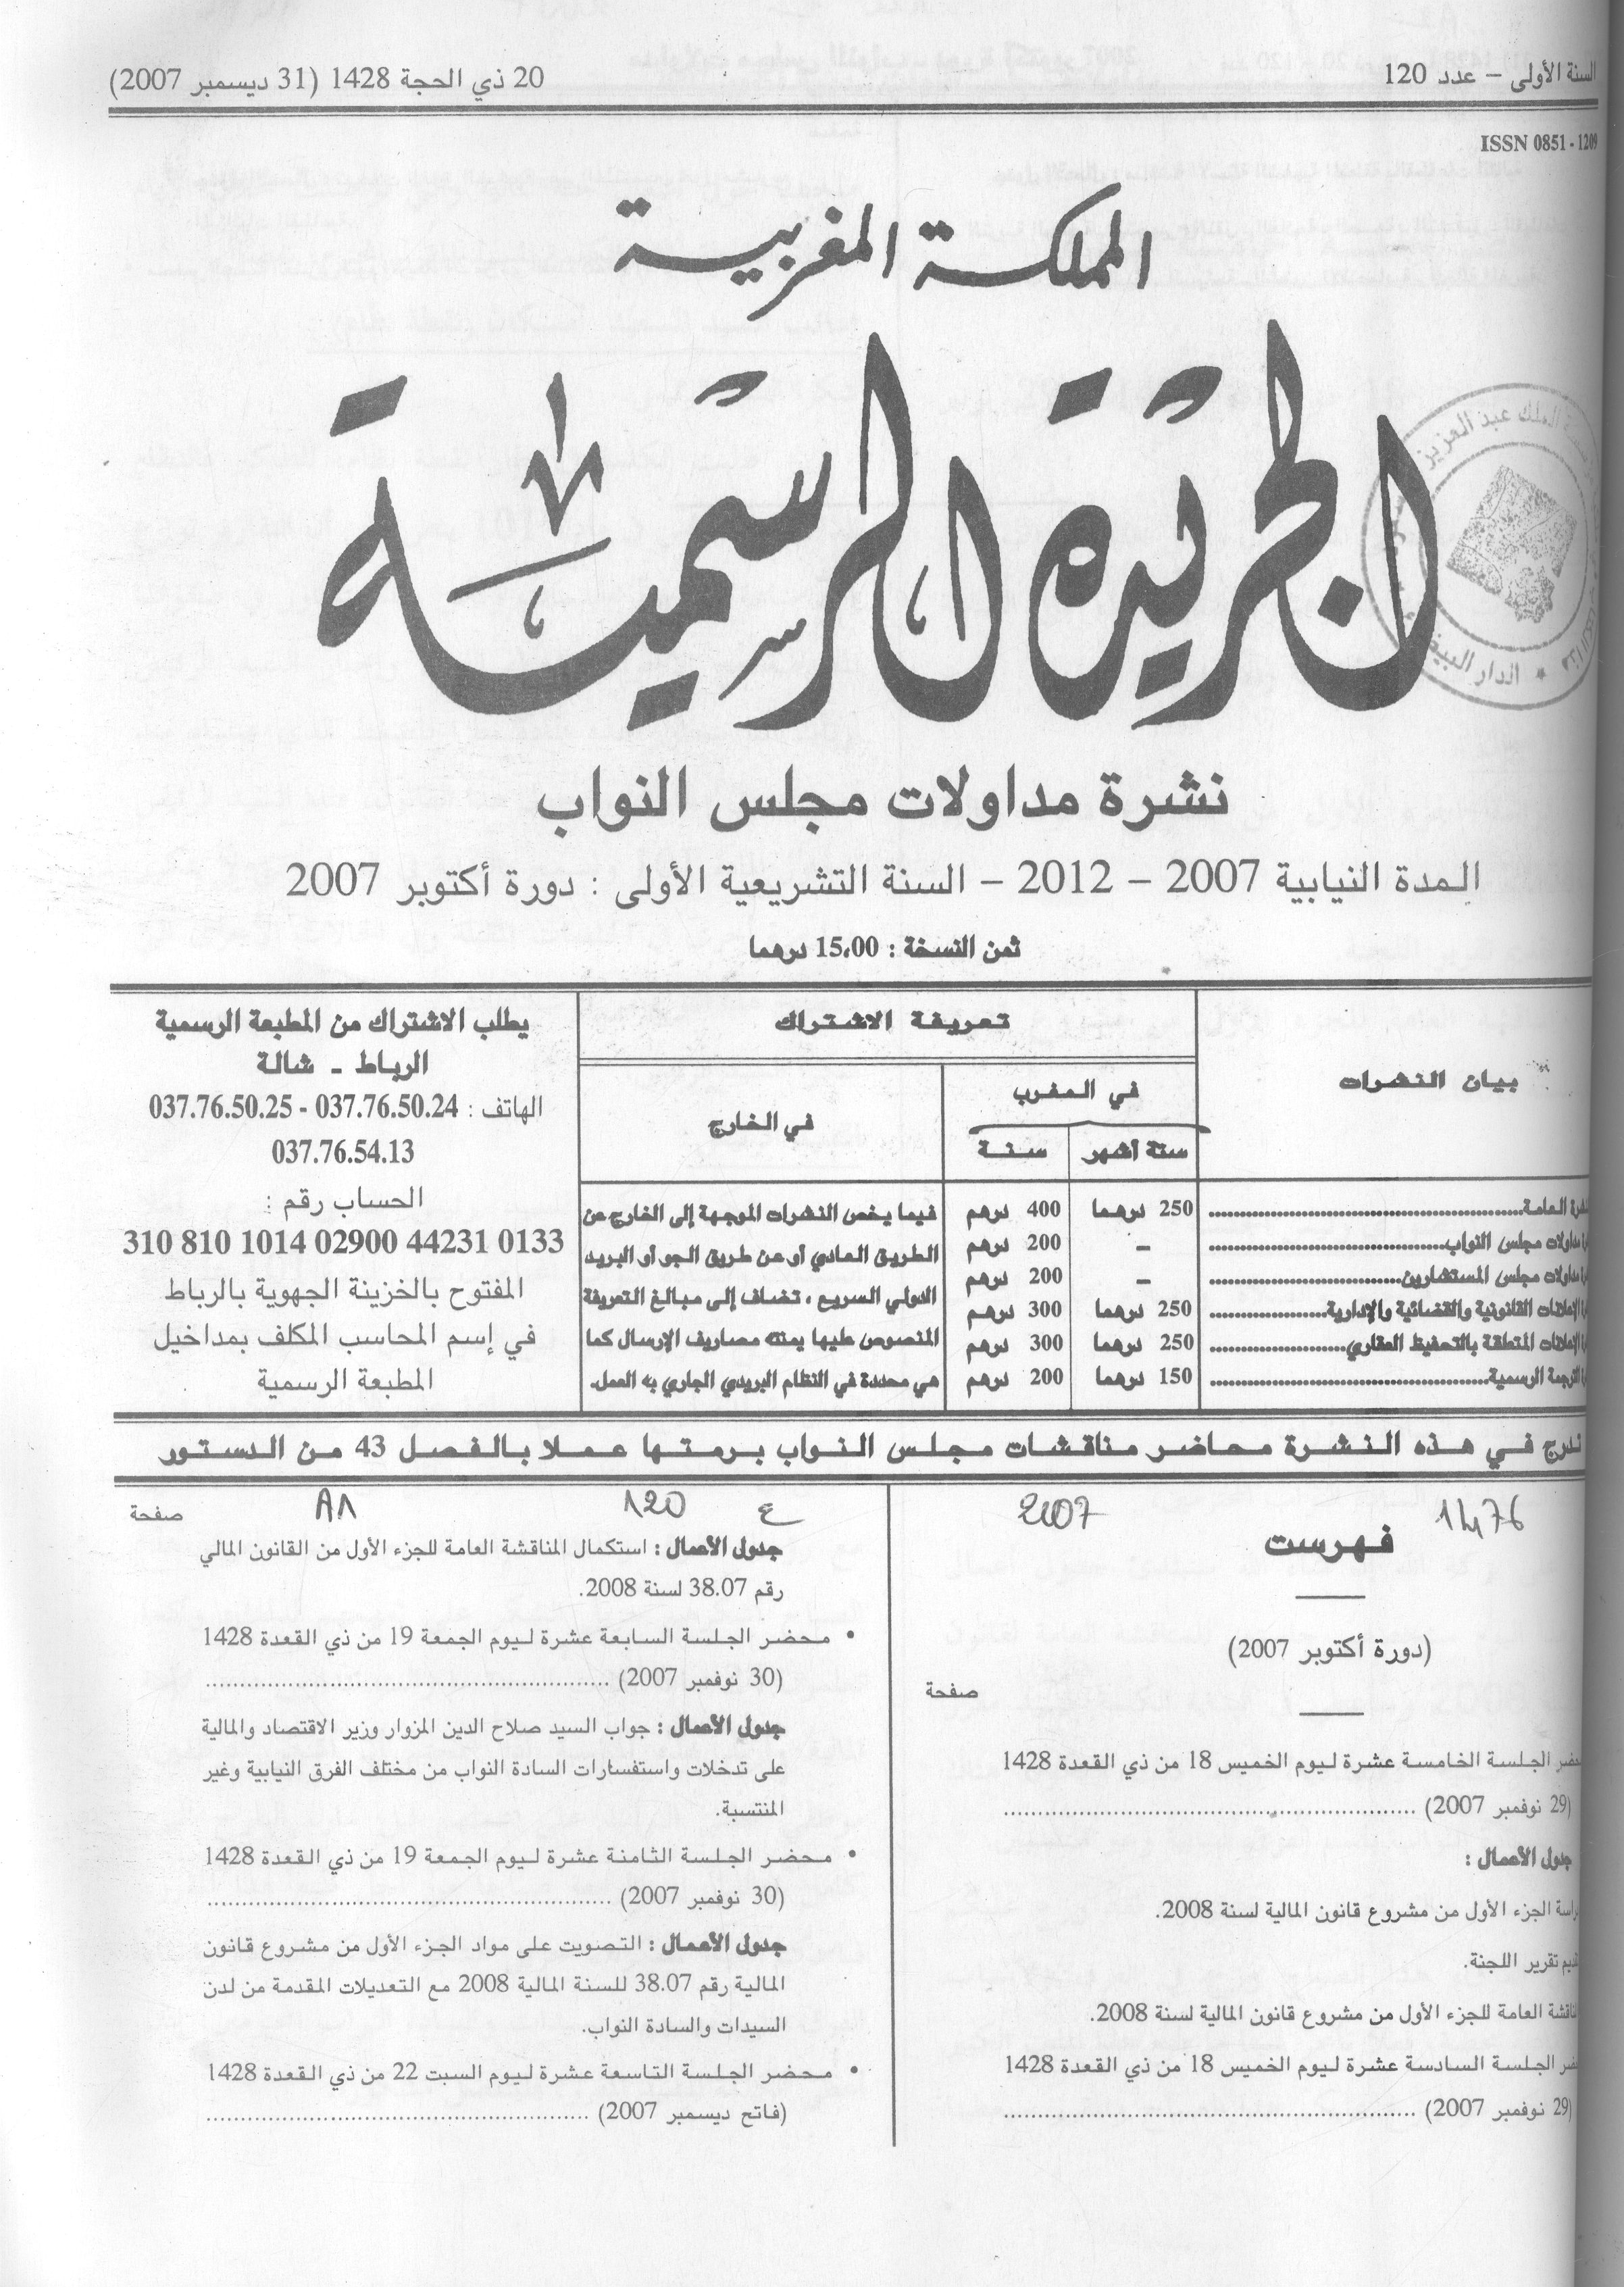 السنة الأولى – عدد 120
20 ذي الحجة 1428 (31 ديسمبر 2007)
ISSN 0851 - 1209
المملكة المغربية
الجريدة الرسمية
نشرة مداولات مجلس النواب
المدة النيابية 2007 – 2012 – السنة التشريعية الأولى : دورة أكتوبر 2007
ثمن النسخة : 15،00 درهما
بيان النشرات
تعريفة الاشتراك
في المغرب
في الخارج
ستة أشهر
سنة
العامة
250 درهما
400 درهم
مداولات مجلس النواب
–
200 درهم
مداولات مجلس المستشارين
–
200 درهم
الإعلانات القانونية والقضائية والإدارية
250 درهما
300 درهم
الإعلانات المتعلقة بالتحفيظ العقاري
250 درهما
300 درهم
الترجمة الرسمية
150 درهما
200 درهم
فيما يخص النشرات الموجهة إلى الخارج عن
الطريق العادي أو عن طريق الجو أو البريد
الدولي السريع ، تضاف إلى مبالغ التعريفة
المنصوص عليها يمنته مصاريف الإرسال كما
هي محددة في النظام البريدي الجاري به العمل.
يطلب الاشتراك من المطبعة الرسمية
الرباط - شالة
الهاتف : 037.76.50.24 - 037.76.50.25
037.76.54.13
الحساب رقم :
310 810 1014 02900 44231 0133
المفتوح بالخزينة الجهوية بالرباط
في إسم المحاسب المكلف بمداخيل
المطبعة الرسمية
تدرج في هذه النشرة محاضر مناقشات مجلس النواب برمتها عملا بالفصل 43 من الدستور
1476
2007
فهرست
(دورة أكتوبر 2007)
صفحة
محضر الجلسة الخامسة عشرة ليوم الخميس 18 من ذي القعدة 1428
(29 نوفمبر 2007)
جدول الأعمال :
دراسة الجزء الأول من مشروع قانون المالية لسنة 2008.
تقديم تقرير اللجنة.
المناقشة العامة للجزء الأول من مشروع قانون المالية لسنة 2008.
محضر الجلسة السادسة عشرة ليوم الخميس 18 من ذي القعدة 1428
(29 نوفمبر 2007)
ع 120
صفحة
جدول الأعمال : استكمال المناقشة العامة للجزء الأول من القانون المالي
رقم 38.07 لسنة 2008.
• محضر الجلسة السابعة عشرة ليوم الجمعة 19 من ذي القعدة 1428
(30 نوفمبر 2007)
جدول الأعمال : جواب السيد صلاح الدين المزوار وزير الاقتصاد والمالية
على تدخلات واستفسارات السادة النواب من مختلف الفرق النيابية وغير
المنتسبة.
• محضر الجلسة الثامنة عشرة ليوم الجمعة 19 من ذي القعدة 1428
(30 نوفمبر 2007)
جدول الأعمال : التصويت على مواد الجزء الأول من مشروع قانون
المالية رقم 38.07 للسنة المالية 2008 مع التعديلات المقدمة من لدن
السيدات والسادة النواب.
• محضر الجلسة التاسعة عشرة ليوم السبت 22 من ذي القعدة 1428
(فاتح ديسمبر 2007)
الملك عبد العزيز